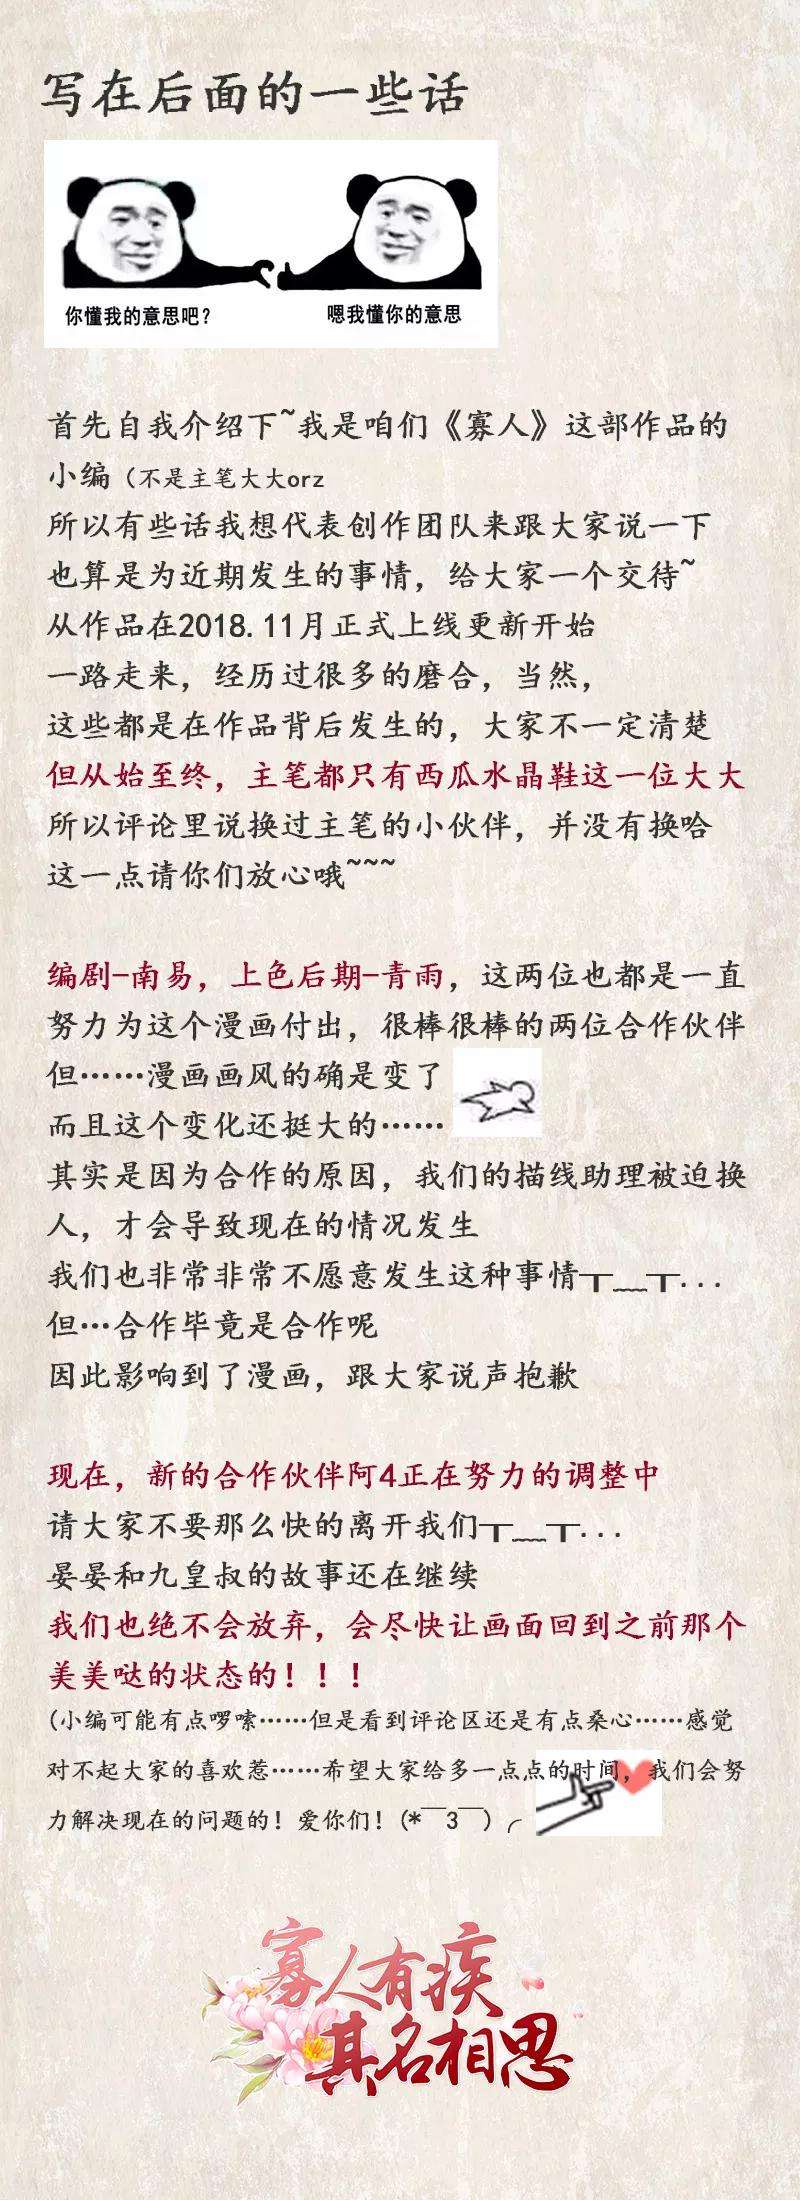 写在后面的一些话
你懂我的意思吧?
嗯我懂你的意思
首先自我介绍下~我是咱们《寡人》这部作品的
小编（不是主笔大大orz
所以有些话我想代表创作团队来跟大家说一下
也算是为近期发生的事情，给大家一个交待~
从作品在2018.11月正式上线更新开始
一路走来，经历过很多的磨合，当然，
这些都是在作品背后发生的，大家不一定清楚
但从始至终，主笔都只有西瓜水晶鞋这一位大大
所以评论里说换过主笔的小伙伴，并没有换哈
这一点请你们放心哦~~~
编剧-南易，上色后期-青雨，这两位也都是一直
努力为这个漫画付出，很棒很棒的两位合作伙伴
但……漫画画风的确是变了
而且这个变化还挺大的……
其实是因为合作的原因，我们的描线助理被迫换
人，才会导致现在的情况发生
我们也非常非常不愿意发生这种事情┬﹏┬...
但…合作毕竟是合作呢
因此影响到了漫画，跟大家说声抱歉
现在，新的合作伙伴阿4正在努力的调整中
请大家不要那么快的离开我们┬﹏┬...
晏晏和九皇叔的故事还在继续
我们也绝不会放弃，会尽快让画面回到之前那个
美美哒的状态的！！！
(小编可能有点啰嗦……但是看到评论区还是有点桑心……感觉
对不起大家的喜欢惹……希望大家给多一点点的时间，我们会努
力解决现在的问题的！爱你们！(*￣3￣)╭
寡人有疾
其名相思